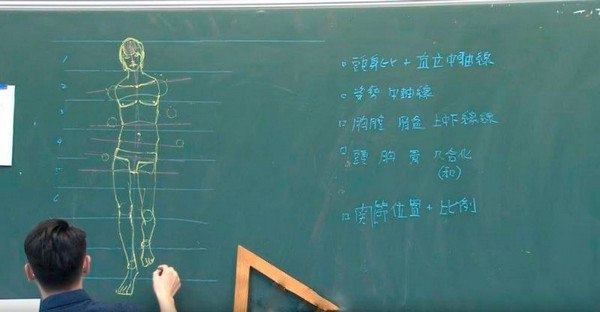 1
2
3
4
5
6
頭身比 + 直立中軸線
姿勢 中軸線
胸腔 骨盆 上下緣線
頭 胸 寛 几合化
(和)
関節位置 + 比例